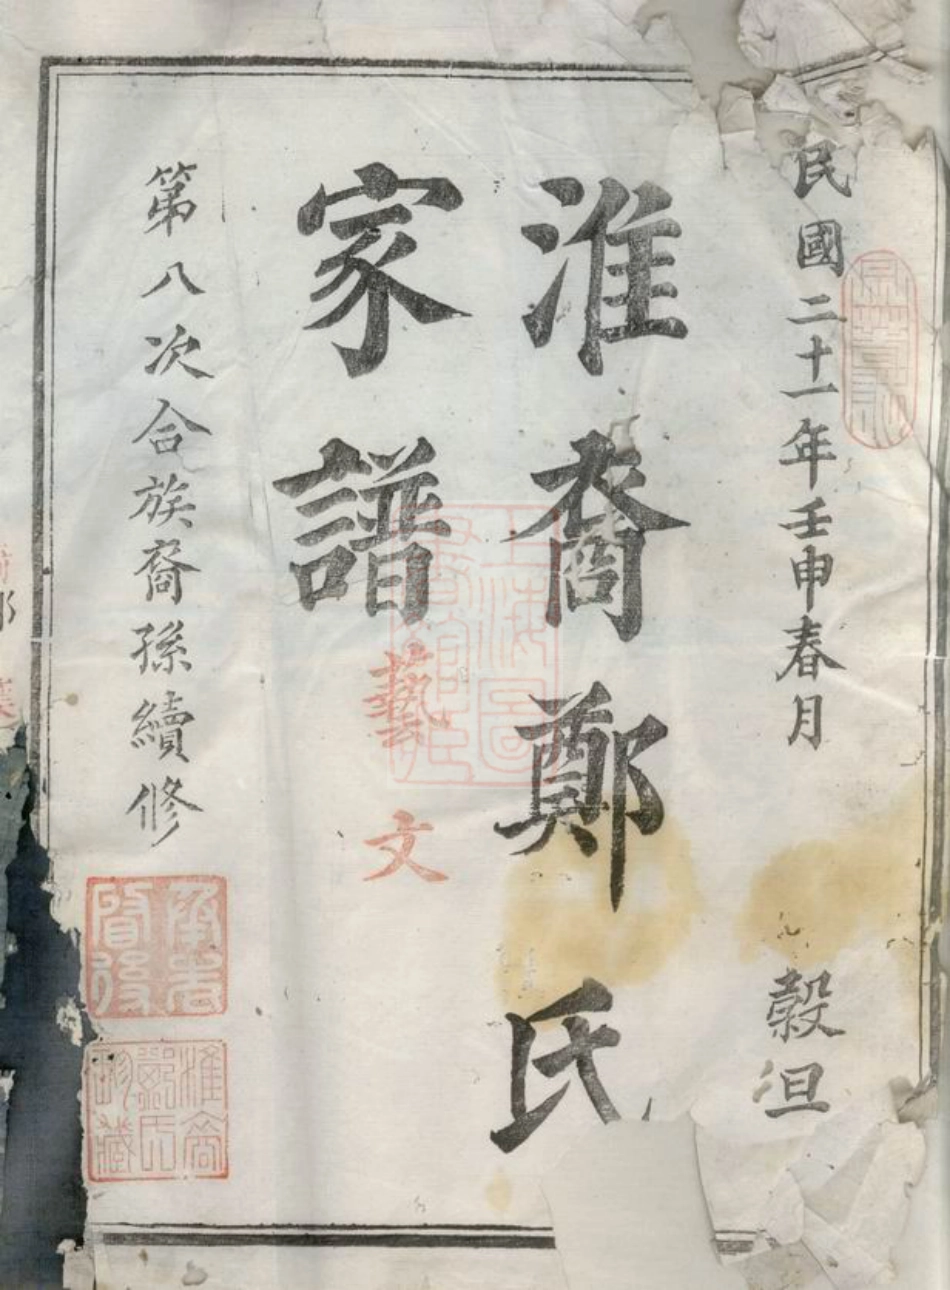 民國二十一年壬申春月　穀旦
淮裔鄭氏
家譜
藝文
第八次合族裔孫續修
承先啓後
淮裔鄭氏珍藏
上海圖書館藏